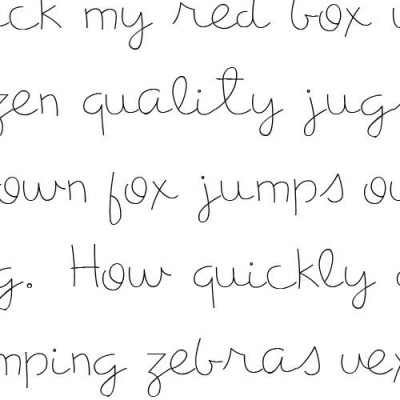 ck my red box w
zen quality jugs
own fox jumps ov
g. How quickly
mping zebras vex